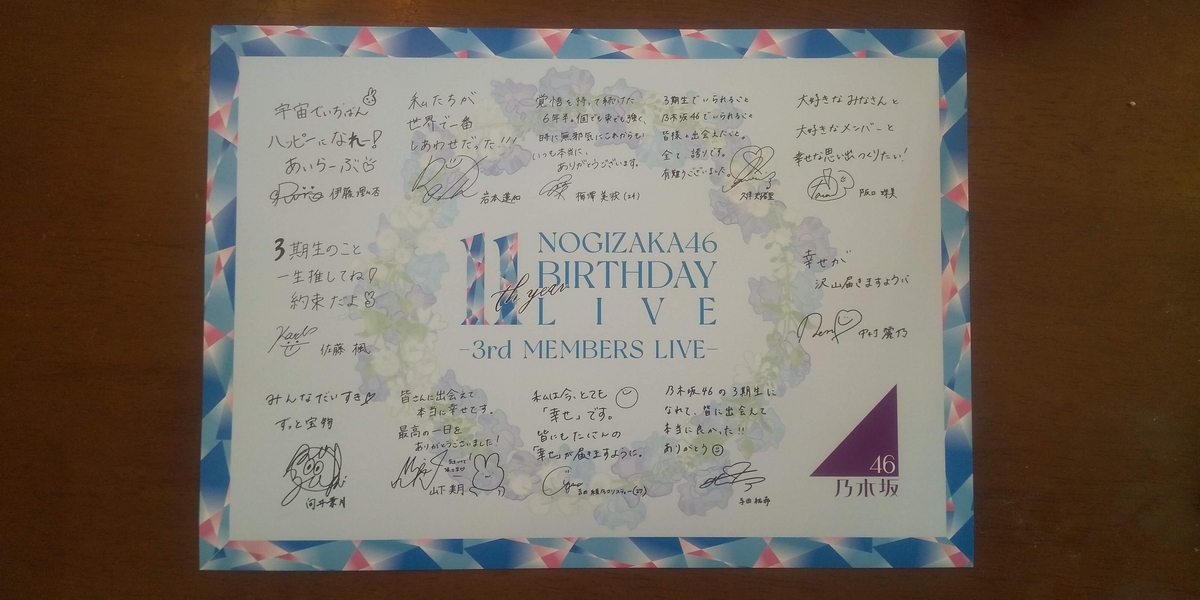 宇宙でいちばん
ハッピーになれー!
あいらーぶ
伊藤理々杏
私たちが
世界で一番
しあわせだった!!!
岩本蓮加
覚悟を持って続けた
6年半。個でも束でも強く、
時に無邪気にこれからも!
いつも本当に、
ありがとうございます。
梅澤美波(24)
3期生でいられること
乃木坂46でいられること
皆様と出会えたこと。
全て誇りです。
有難うございました。
久保史緒里
大好きなみなさんと
大好きなメンバーと
幸せな思い出つくりたい!
阪口珠美
3期生のこと
一生推してね!
約束だよ
佐藤楓
11th year
NOGIZAKA46
BIRTHDAY
LIVE
-3rd MEMBERS LIVE-
幸せが
沢山届きますように
中村麗乃
みんなだいすき
ずっと宝物
向井葉月
皆さんに出会えて
本当に幸せです。
最高の一日を
ありがとうございました!
山下美月
私は今、とても
「幸せ」です。
皆にもたくさんの
「幸せ」が届きますように。
吉田綾乃クリスティー(27)
乃木坂46の3期生に
なれて、皆に出会えて
本当に良かった!!
ありがとう
与田祐希
46
乃木坂